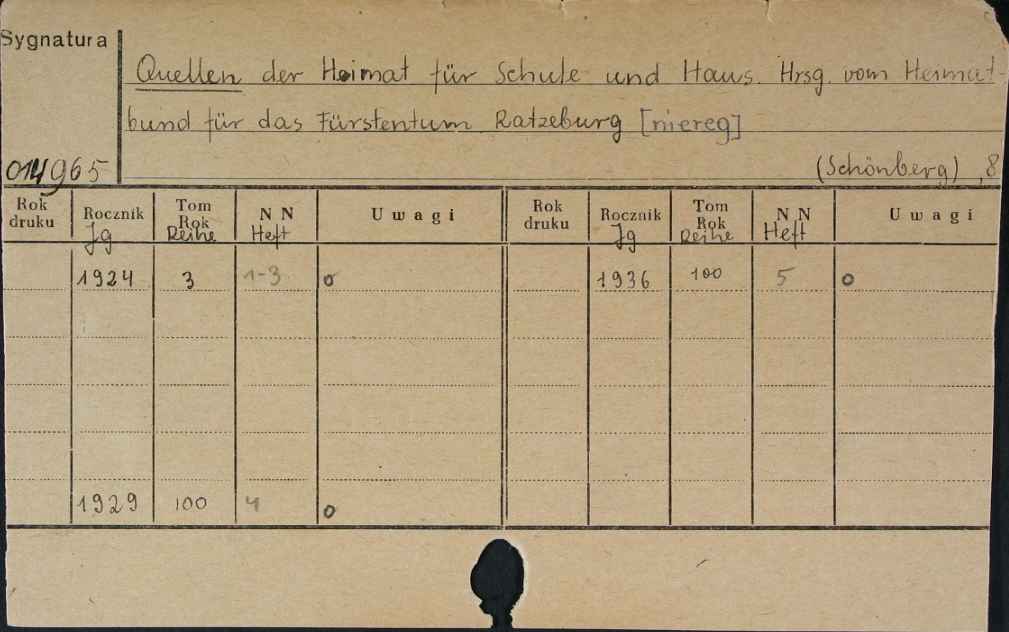 Sygnatura
Quellen der Heimat für Schule und Haus. Hrsg. vom Heimat-
bund für das Fürstentum Ratzeburg [niereg]
014965
(Schönberg), 8
Rok druku Rocznik Tom Rok N N Uwagi Rok druku Rocznik Tom Rok N N Uwagi
Jg Reihe Heft Jg Reihe Heft
1924 3 1-3 o 1936 100 5 o
1929 100 4 o